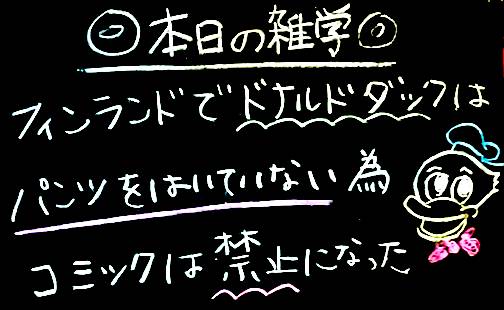 ◎本日の雑学◎
フィンランドでドナルドダックは
パンツをはいていない為
コミックは禁止になった